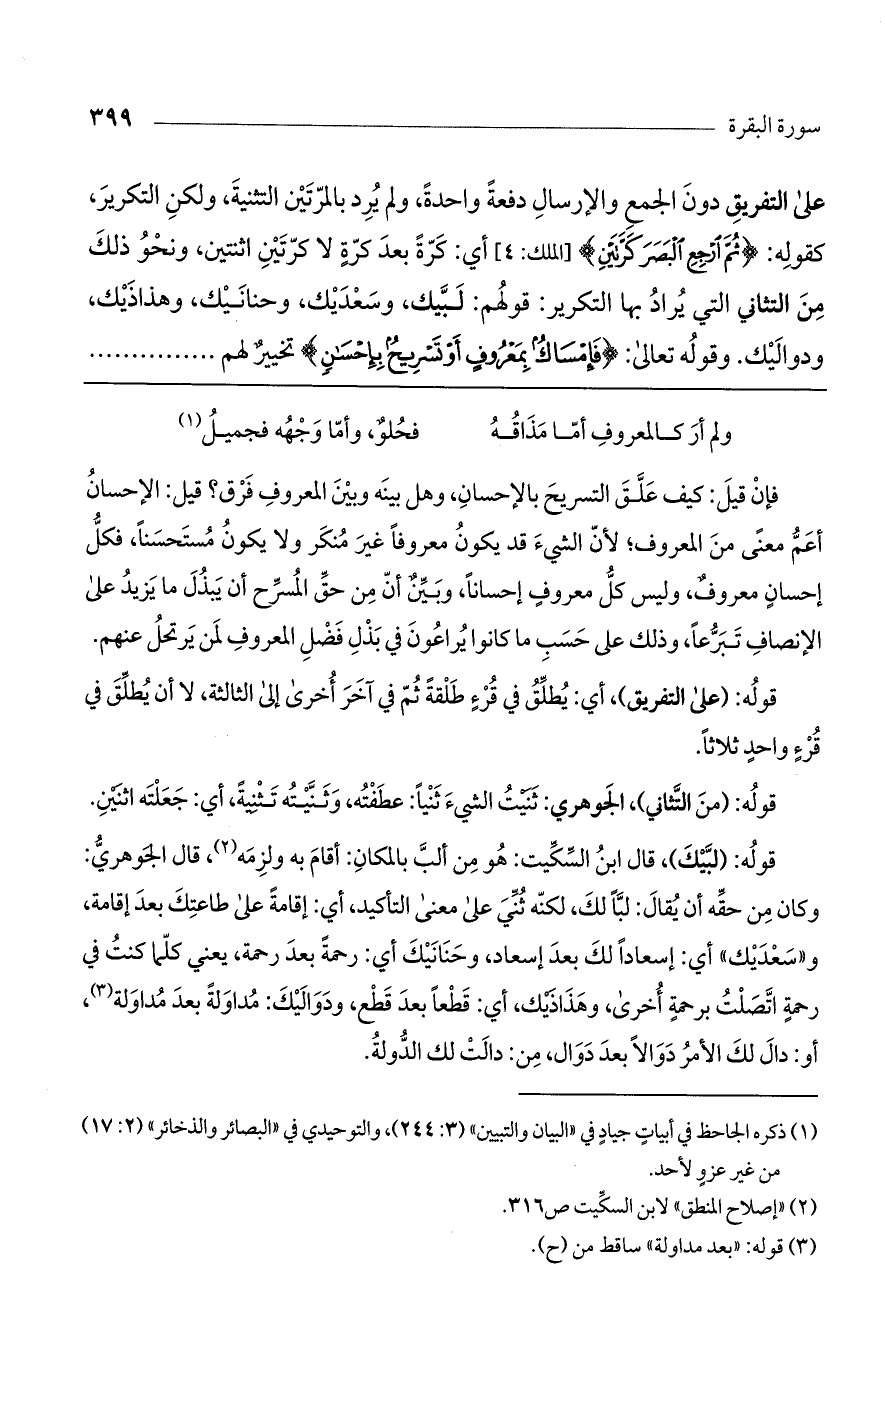 سورة البقرة ٣٩٩
على التفريقِ دونَ الجمعِ والإرسالِ دفعةً واحدةً، ولم يُرِد بالمرّتَيْنِ التثنيةَ، ولكنِ التكريرَ،
كقولِه: ﴿ثُمَّ ٱرْجِعِ ٱلْبَصَرَ كَرَّتَيْنِ﴾ [الملك: ٤] أي: كَرّةً بعدَ كرّةٍ لا كرّتَيْنِ اثنتين، ونحْوُ ذلكَ
مِنَ التثاني التي يُرادُ بها التكرير: قولُهم: لَـبَّيك، وسَعْدَيْك، وحنانَـيْك، وهذاذَيْك،
ودوالَيْك. وقولُه تعالىٰ: ﴿فَإِمْسَاكٌۢ بِمَعْرُوفٍ أَوْ تَسْرِيحٌۢ بِإِحْسَٰنٍ﴾ تخييرٌ لهم ...............
ولم أرَ كـالمعروفِ أمّـا مَذَاقُـهُ فحُلوٌ، وأمّا وَجْهُه فجميـلُ(١)
فإنْ قيلَ: كيف عَلَّـقَ التسريحَ بالإحسانِ، وهل بينَه وبيْنَ المعروفِ فَرْق؟ قيل: الإحسانُ
أعَمُّ معنًى منَ المعروف؛ لأنّ الشيءَ قد يكونُ معروفاً غيرَ مُنكَر ولا يكونُ مُستَحسَناً، فكلُّ
إحسانٍ معروفٌ، وليس كلُّ معروفٍ إحساناً، وبَـيِّنٌ أنّ مِن حقِّ المُسرِّح أن يَبذُلَ ما يَزيدُ علىٰ
الإنصافِ تَـبَرُّعاً، وذلك على حَسَبِ ما كانوا يُراعُونَ في بَذْلِ فَضْلِ المعروفِ لمَن يَرتحلُ عنهم.
قولُه: (علىٰ التفريق)، أي: يُطلِّقُ في قُرْءٍ طَلْقةً ثُمّ في آخَرَ أُخرىٰ إلىٰ الثالثة، لا أن يُطلِّقَ في
قُرْءٍ واحدٍ ثلاثاً.
قولُه: (منَ التَّثاني)، الجَوهري: ثَنَيْتُ الشيءَ ثَنْياً: عطَفْتُه، وَثَـنَّيْـتُه تَـثْنِيةً، أي: جَعَلْتَه اثنَيْنِ.
قولُه: (لبَّيْكَ)، قال ابنُ السِّكِّيت: هُو مِن ألبَّ بالمكانِ: أقامَ به ولزِمَه(٢)، قال الجَوهريُّ:
وكان مِن حقِّه أن يُقالَ: لبّاً لكَ، لكنّه ثُنِّيَ علىٰ معنىٰ التأكيد، أي: إقامةً علىٰ طاعتِكَ بعدَ إقامة،
و«سَعْدَيْك» أي: إسعاداً لكَ بعدَ إسعاد، وحَنَانَيْكَ أي: رحمةً بعدَ رحمة، يعني كلّما كنتُ في
رحمةٍ اتَّصَلْتُ برحمةٍ أُخرىٰ، وهَذَاذَيْك، أي: قَطْعاً بعدَ قَطْع، ودَوَالَيْكَ: مُداوَلةً بعدَ مُداوَلة(٣)،
أو: دالَ لكَ الأمرُ دَوَالاً بعدَ دَوَال، مِن: دالَتْ لك الدُّولةُ.
(١) ذكره الجاحظ في أبياتٍ جيادٍ في «البيان والتبيين» (٣: ٢٤٤)، والتوحيدي في «البصائر والذخائر» (٢: ١٧)
من غير عزوٍ لأحد.
(٢) «إصلاح المنطق» لابن السكِّيت ص٣١٦.
(٣) قوله: «بعد مداولة» ساقط من (ح).